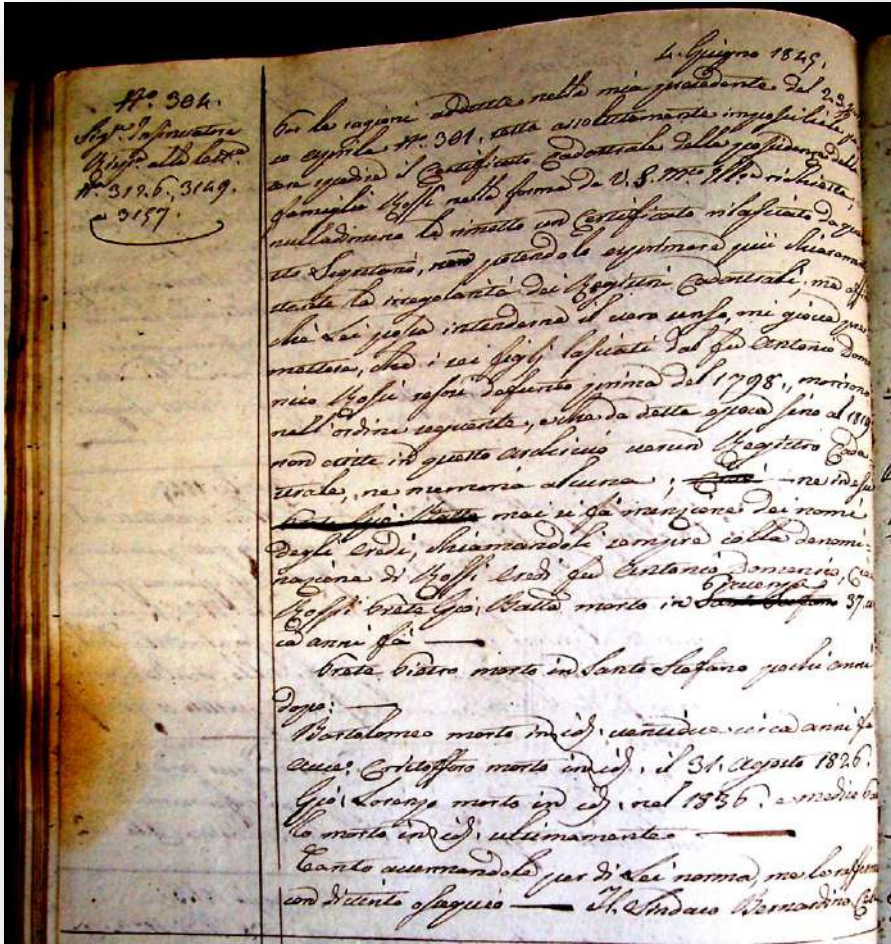 4. Giugno 1845.
N.º 304.
Sig.r Insinuatore
Risp.a alle lett.e
N.º 3126, 3149.
e 3157.
Per le ragioni addotte nella mia precedente del 23.
aprile N.º 301. resta assolutamente impossibile
spedire il Certificato Cadastrale delle possidenze della
famiglia Rossi nella forma da V. S. M.to Ill.e richiesta;
nulladimeno le rimetto un Certificato rilasciato da que
sto Segretaro, non potendolo esprimere più chiaram
stante la irregolarità dei Registri Cadastrali; ma
chè Lei possa intenderne il vero senso, mi giova pre
mettere, che i sei figlj lasciati dal fu Antonio Dome
nico Rossi resosi defunto prima del 1798., morirono
nell'ordine seguente, e che da detta epoca sino al 1819
non esiste in questo archivio verun Registro Cada
strale, ne memoria alcuna; ne in
mai si fà menzione dei nomi
degli Eredi, chiamandoli sempre colla denomi-
nazione di Rossi Eredi fu Antonio Domenico,
Rossi Prete Gio. Batta morto in Santo Stefano 37,
ca anni fà
Prete Pietro morto in Santo Stefano pochi anni
dopo:
Bartolomeo morto in id. ventidue circa anni fa
Avv.o Cristofforo morto in id. il 31. Agosto 1826.
Gio. Lorenzo morto in id. nel 1836. e medico
lo morto in id. ultimamente
Tanto accennandole per di Lei norma, me le raffermo
con distinto ossequio Il Sindaco Bernardino